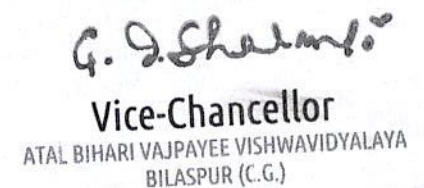 G. D. Sharma
Vice-Chancellor
ATAL BIHARI VAJPAYEE VISHWAVIDYALAYA
BILASPUR (C.G.)